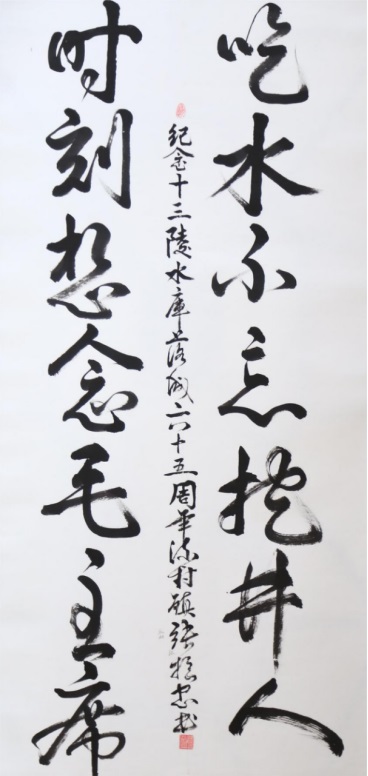 吃水不忘挖井人
纪念十三陵水庫落成六十五周年流村镇張忠书
时刻想念毛主席